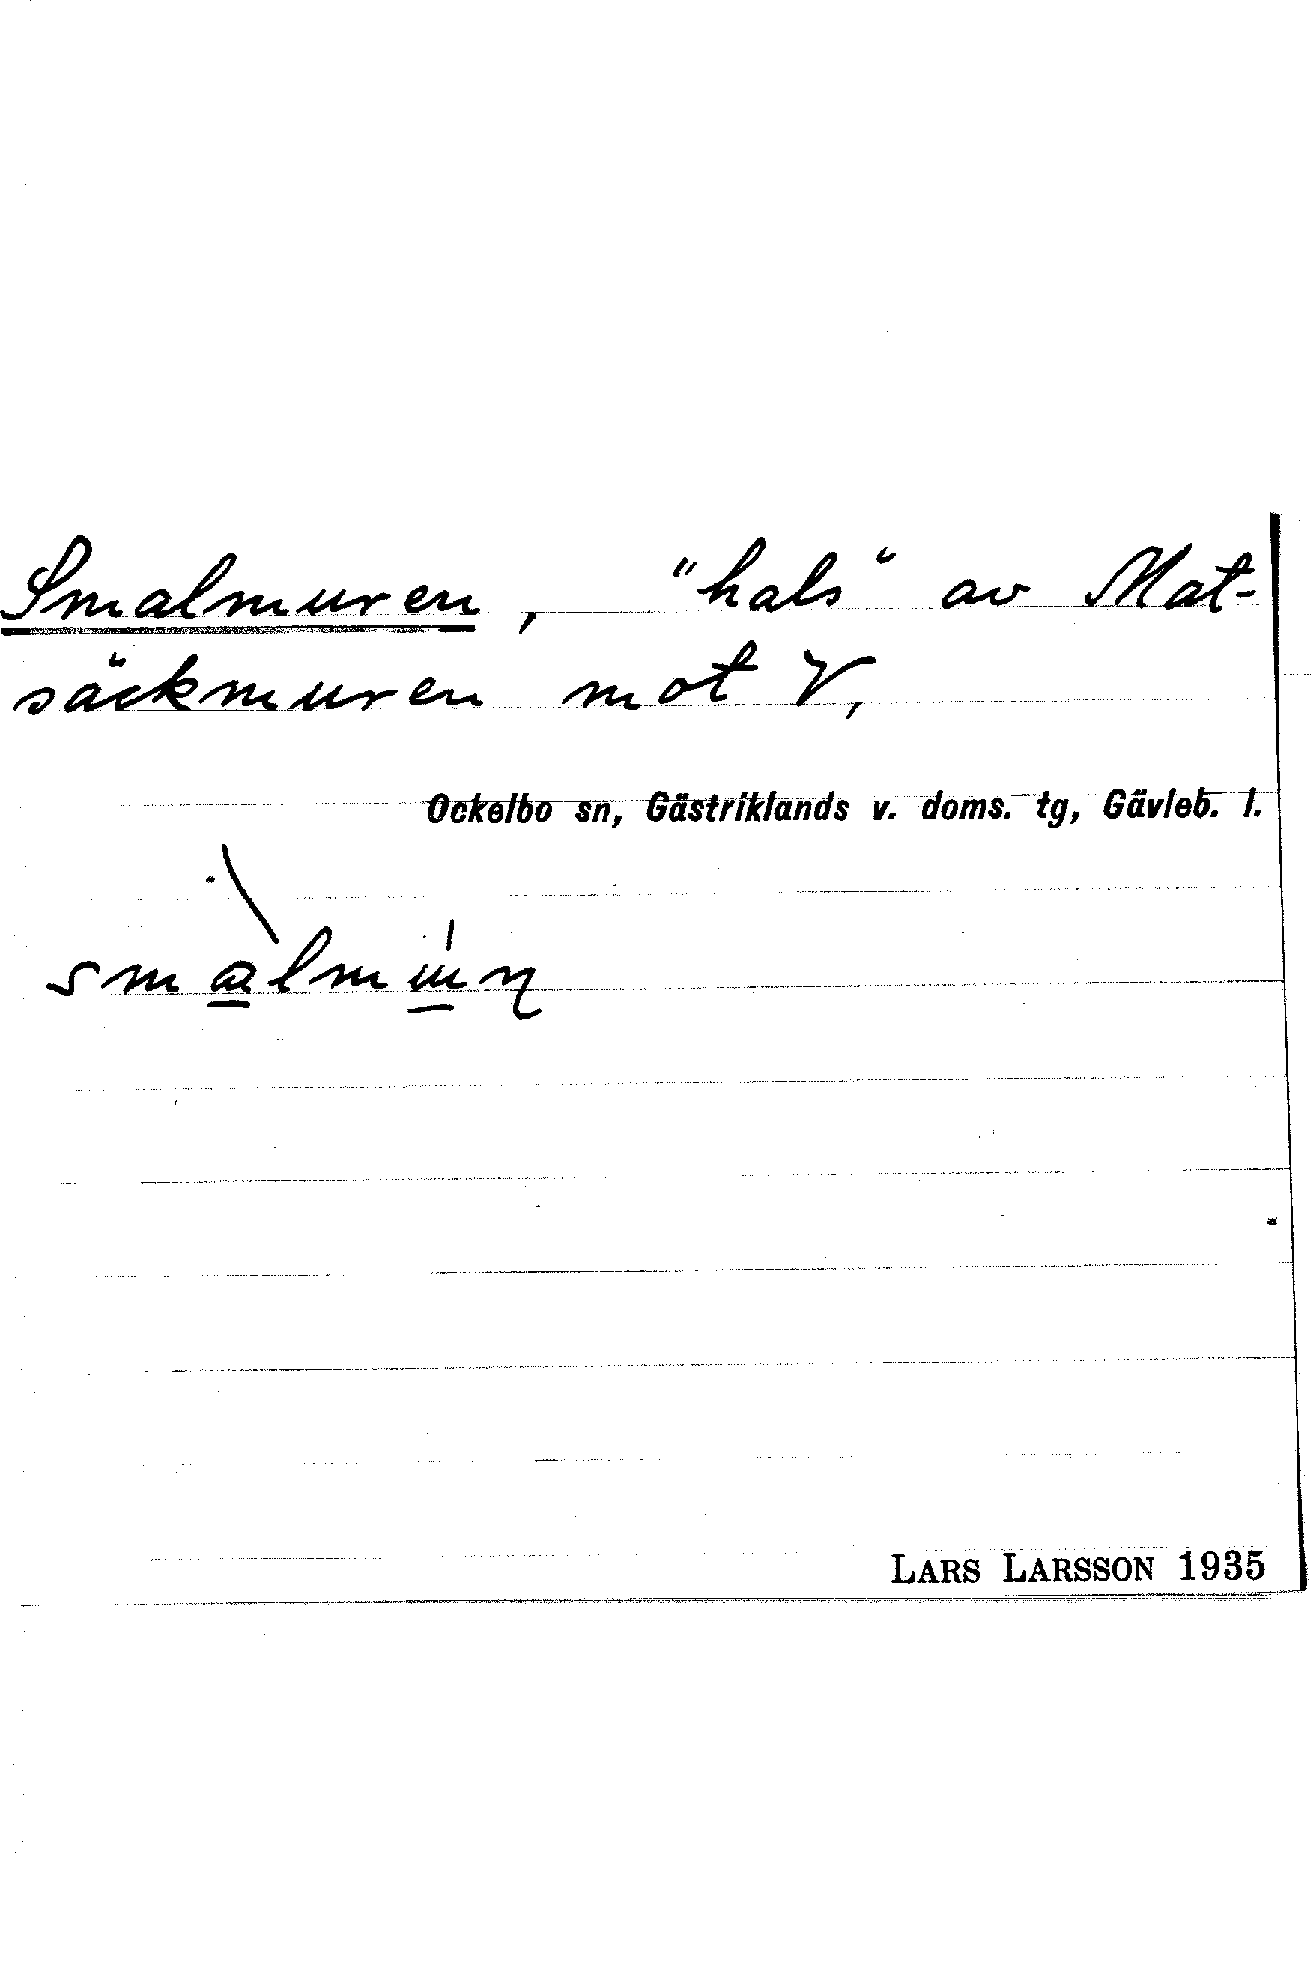 Smalmuren, "hals" av Mat-
säckmuren mot V,
Ockelbo sn, Gästriklands v. doms. tg, Gävleb. l.
LARS LARSSON 1935